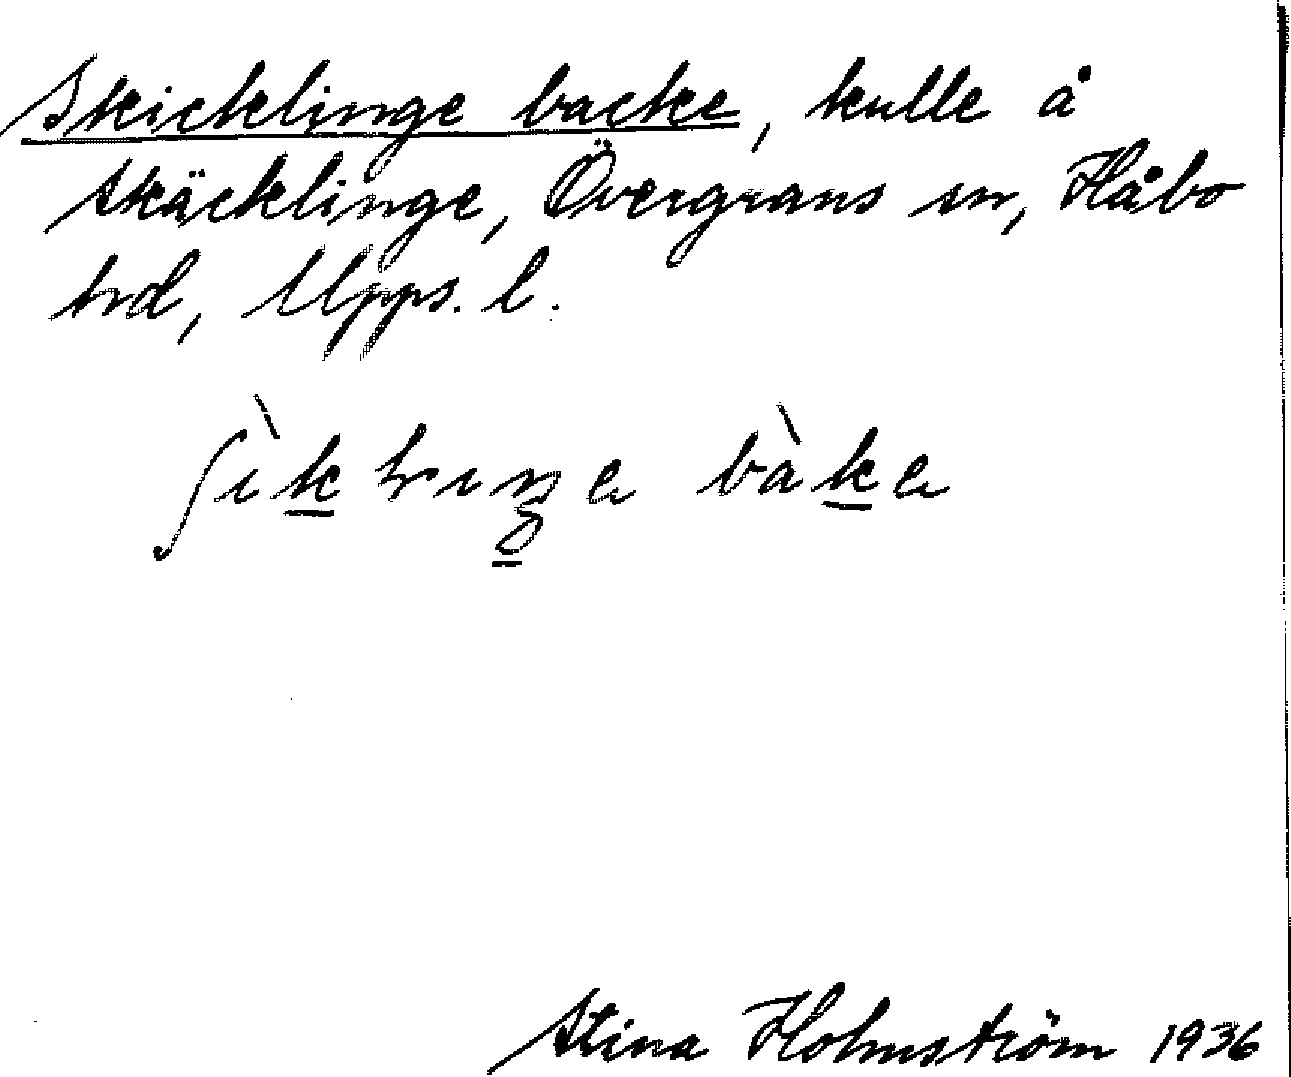 Skicklinge backe, kulle å
Skäcklinge, Övergrans sn, Håbo
hrd, Upps. l.
bàke
Stina Holmström 1936